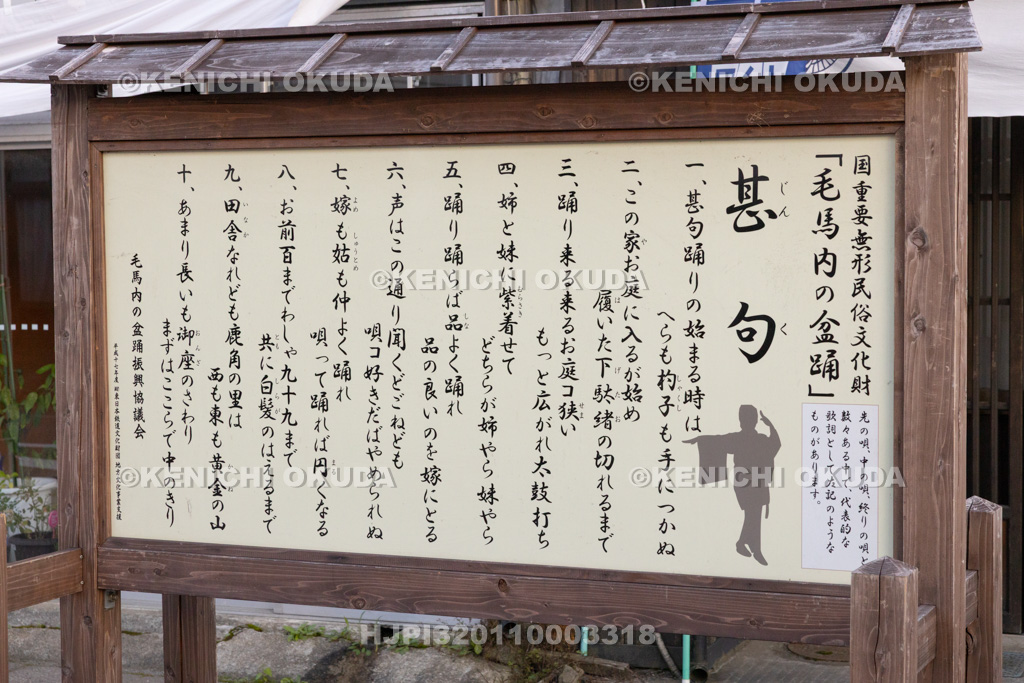 国重要無形民俗文化財
「毛馬内の盆踊」
甚句
じんく
先の唄、中の唄、終りの唄と
数々ある中で、代表的な
歌詞として左記のような
ものがあります。
一、甚句踊りの始まる時は
へらも杓子も手につかぬ
しゃくし
二、この家お庭に入るが始め
や
履いた下駄緒の切れるまで
は
げたお
三、踊り来る来るお庭コ狭い
せま
もっと広がれ太鼓打ち
四、姉と妹に紫着せて
むらさき
どちらが姉やら妹やら
五、踊り踊らば品よく踊れ
しな
品の良いのを嫁にとる
六、声はこの通り聞くどごねども
唄コ好きだばやめられぬ
七、嫁も姑も仲よく踊れ
よめ
しゅうとめ
唄って踊れば円くなる
まる
八、お前百までわしゃ九十九まで
共に白髪のはえるまで
とも
しらが
九、田舎なれども鹿角の里は
いなか
西も東も黄金の山
かね
十、あまり長いも御座のさわり
おんざ
まずはここらで中のきり
毛馬内の盆踊振興協議会
平成十七年度 財東日本鉄道文化財団 地方文化事業支援
©KENICHI OKUDA
©KENICHI OKUDA
©KENICHI OKUDA
©KENICHI OKUDA
©KENICHI OKUDA
HJPI320110003318